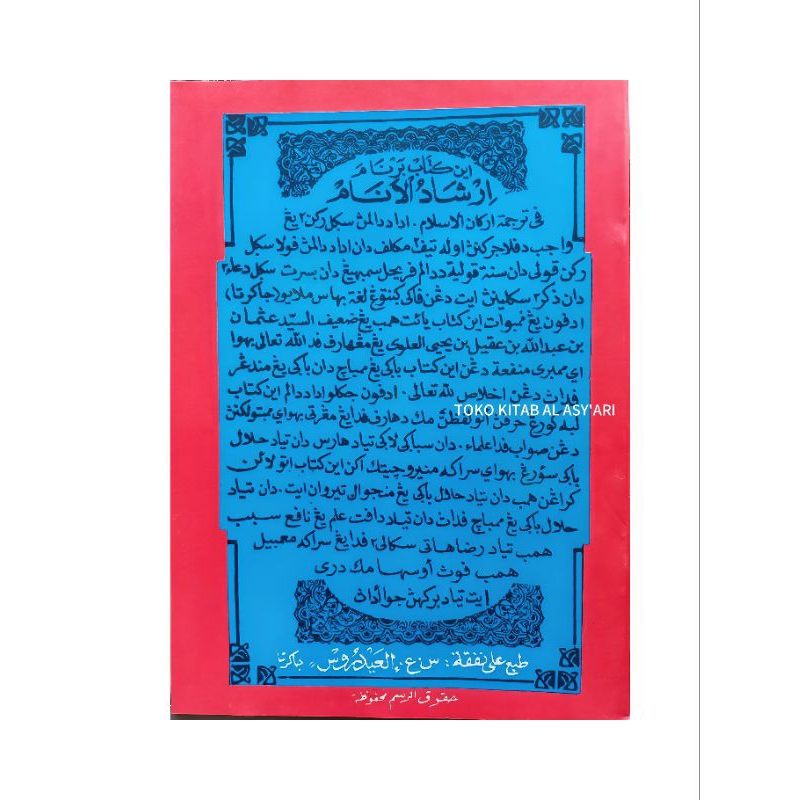 اين كتاب برنام
إرشاد الأنام
فى ترجمة اركان الاسلام. اداددالمڽ سكل ركن٢ يڠ
واجب دفلاجركنڽ اوله تيڤ٢ مكلف دان اداددالمڽ ڤولا سكل
ركن قولي دان سنة قولية ددالم فريحل سمبهيڠ دان بسرت سكل دعاء٢
دان ذكر٢ سكلينڽ ايت دڠن فاكى كنتوڠ لغة بهاس ملايو (جاكرتا)
ادڤون يڠ ممبوات اين كتاب يائت همب يڠ ضعيف السيد عثمان
بن عبدالله بن عقيل بن يحيى العلوي يڠ مڠهارف فد الله تعالى بهوا
اي ممبرى منفعة دڠن اين كتاب باكى يڠ ممباچ دان باكى يڠ مندڠر
فداڽ دڠن اخلاص لله تعالى. ادڤون جكلو اداددالم اين كتاب
لبه كورڠ حرفڽ اتو لفظڽ مك دهارف فدا يڠ مڠرتى بهواي ممبتولكنڽ
دڠن صواب فدا علماء. دان سباكى لاكى تياد هارس دان تياد حلال
باكى سؤرڠ بهواي سراكه منيرو چيتك اكن اين كتاب اتو لائن
كراڠن همب دان تياد حلال باكى يڠ منجوال تيروان ايت. دان تياد
حلال باكى يڠ ممباچ فداڽ دان تياد داڤت علم يڠ نافع سبب
همب تياد رضا هاتى سكالى٢ فدا يڠ سراكه معمبيل
همب ڤوڽ أوسها مك درى
ايت تياد بركهڽ جواداڽ
طبع على نفقة : س. ع. العيدروس، جاكرتا
حقوق الرسم محفوظة
TOKO KITAB AL ASY'ARI